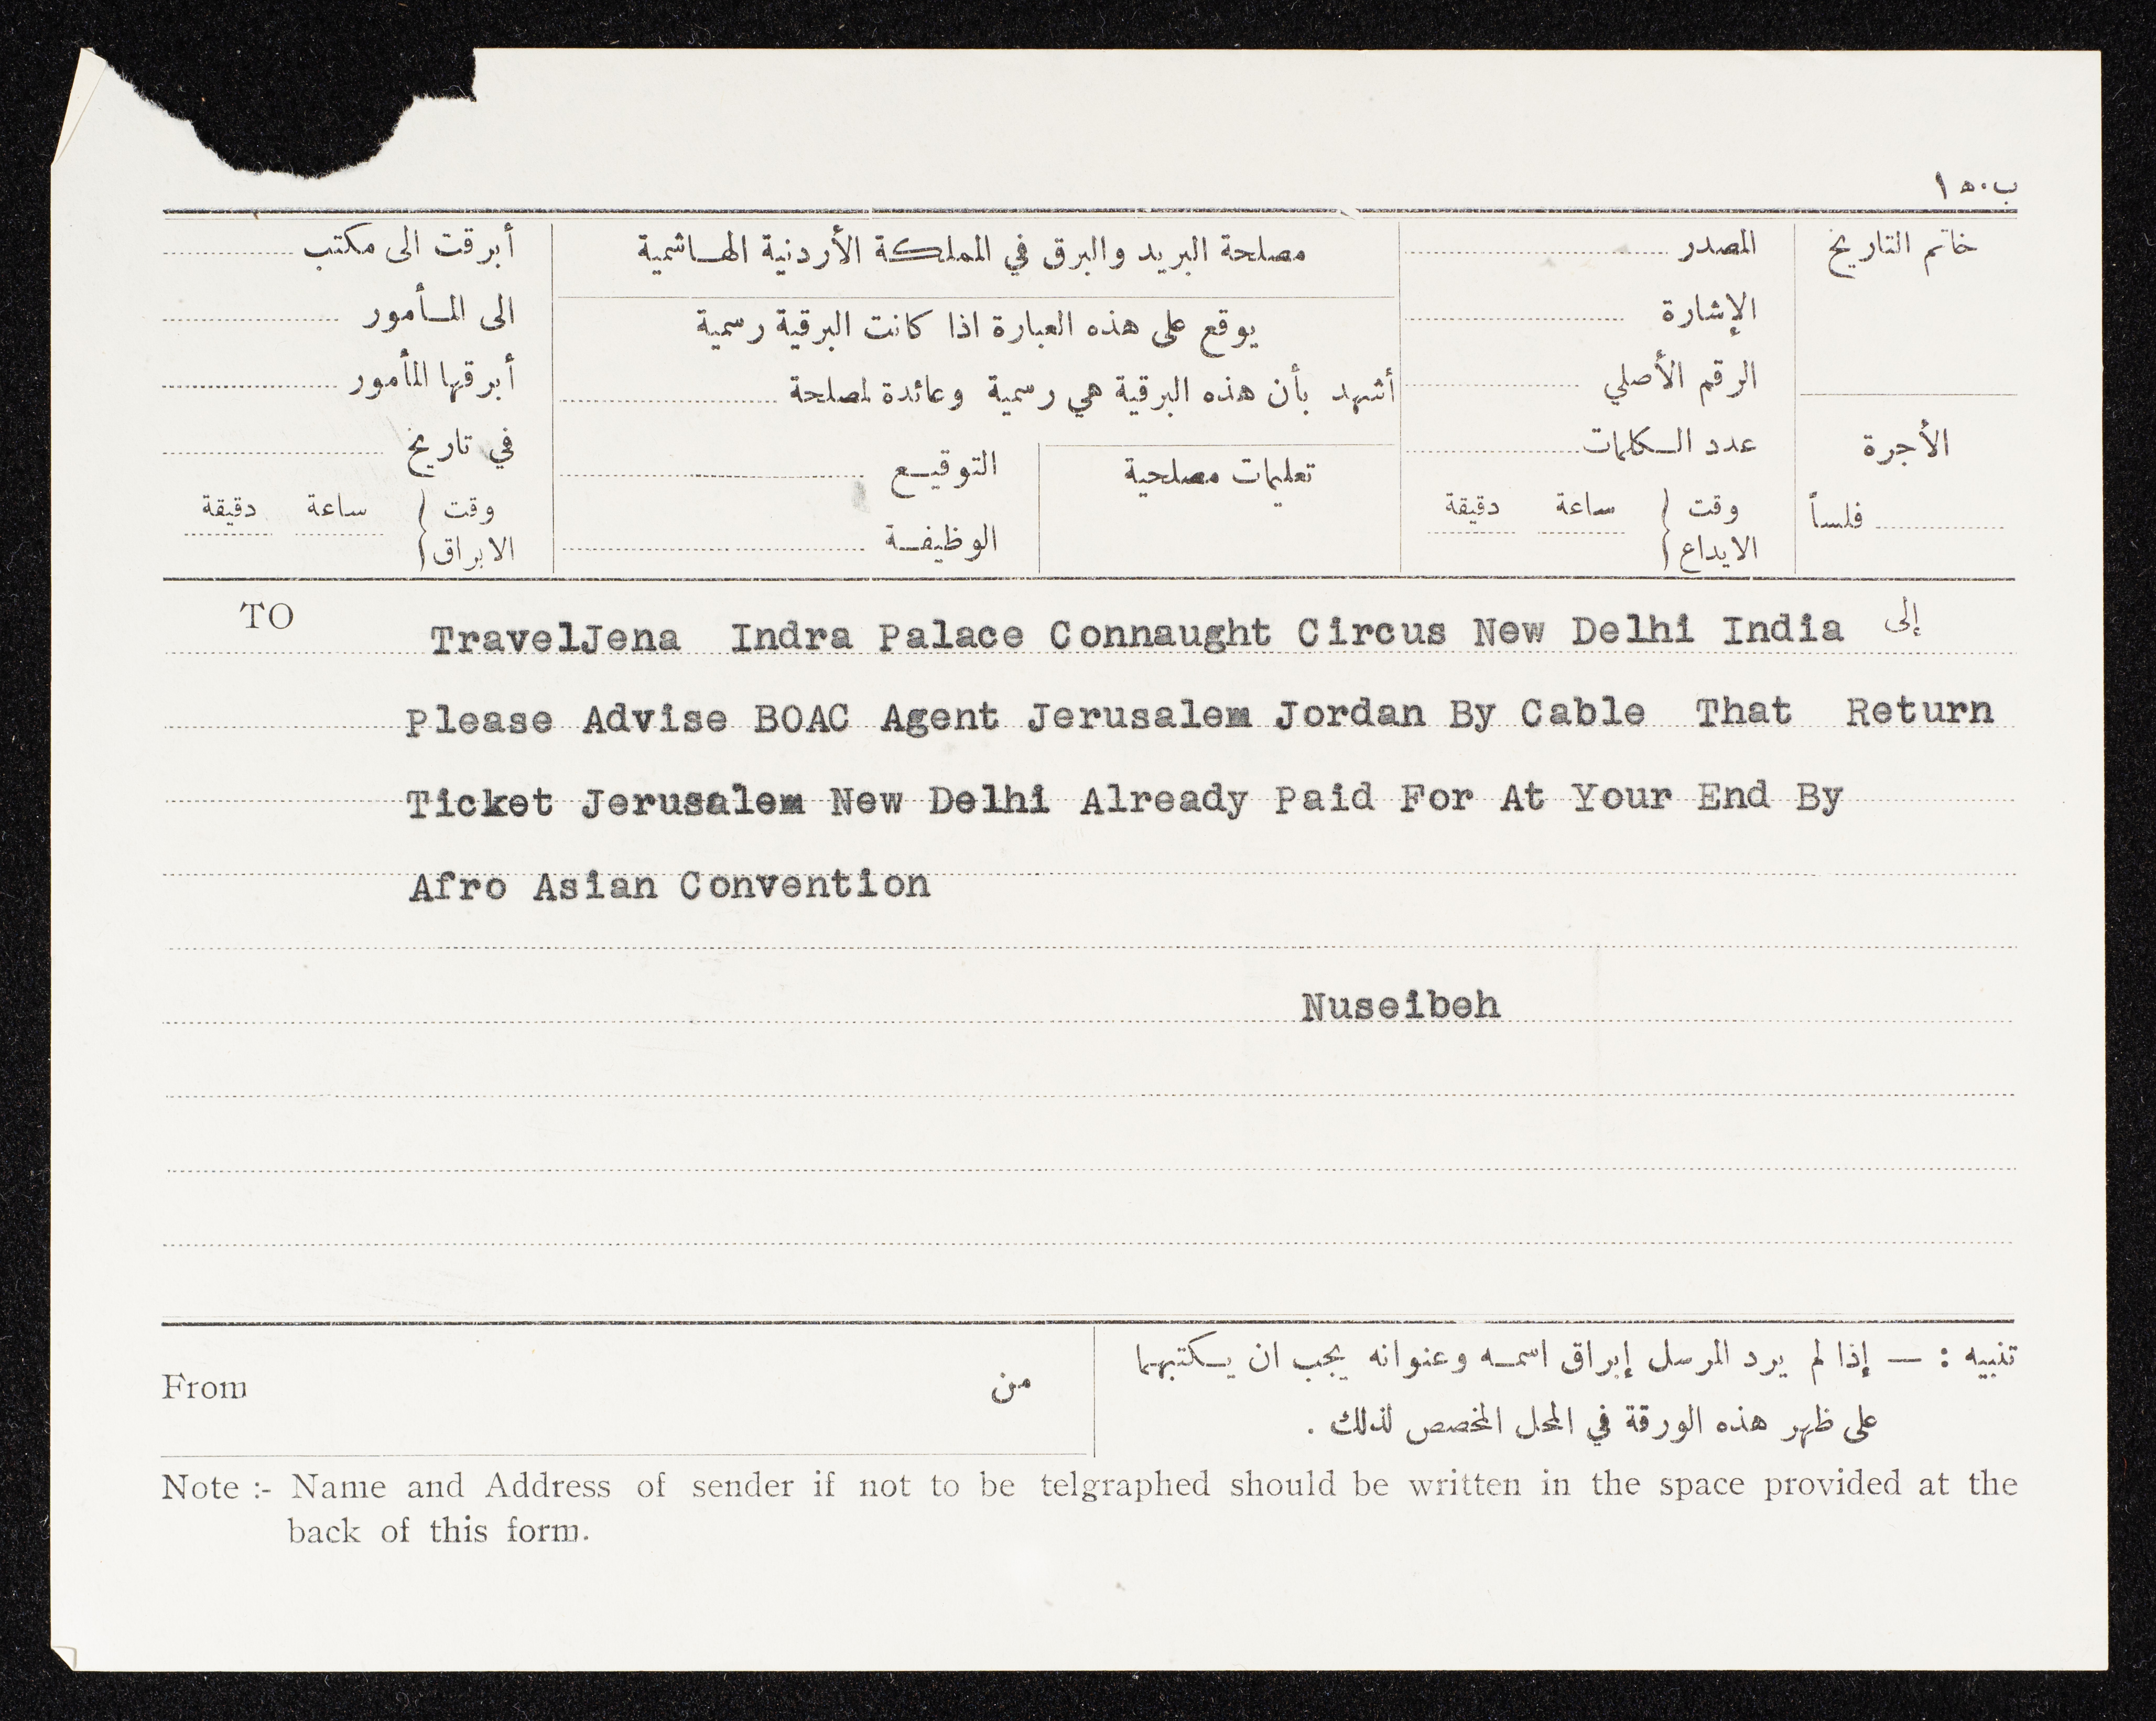 ب ١٥٠
خاتم التاريخ
الأجرة
فلساً
المصدر
الإشارة
الرقم الأصلي
عدد الكلمات
وقت الايداع
ساعة
دقيقة
مصلحة البريد والبرق في المملكة الأردنية الهاشمية
يوقع على هذه العبارة اذا كانت البرقية رسمية
أشهد بأن هذه البرقية هي رسمية وعائدة لمصلحة
تعليمات مصلحية
التوقيع
الوظيفة
أبرقت الى مكتب
الى المأمور
أبرقها المأمور
في تاريخ
وقت الابراق
ساعة
دقيقة
TO
إلى
TravelJena Indra Palace Connaught Circus New Delhi India
Please Advise BOAC Agent Jerusalem Jordan By Cable That Return
Ticket Jerusalem New Delhi Already Paid For At Your End By
Afro Asian Convention
Nuseibeh
From
من
تنبيه : — إذا لم يرد المرسل إبراق اسمه وعنوانه يجب ان يكتبهما
على ظهر هذه الورقة في المحل المخصص لذلك .
Note :- Name and Address of sender if not to be telgraphed should be written in the space provided at the
back of this form.